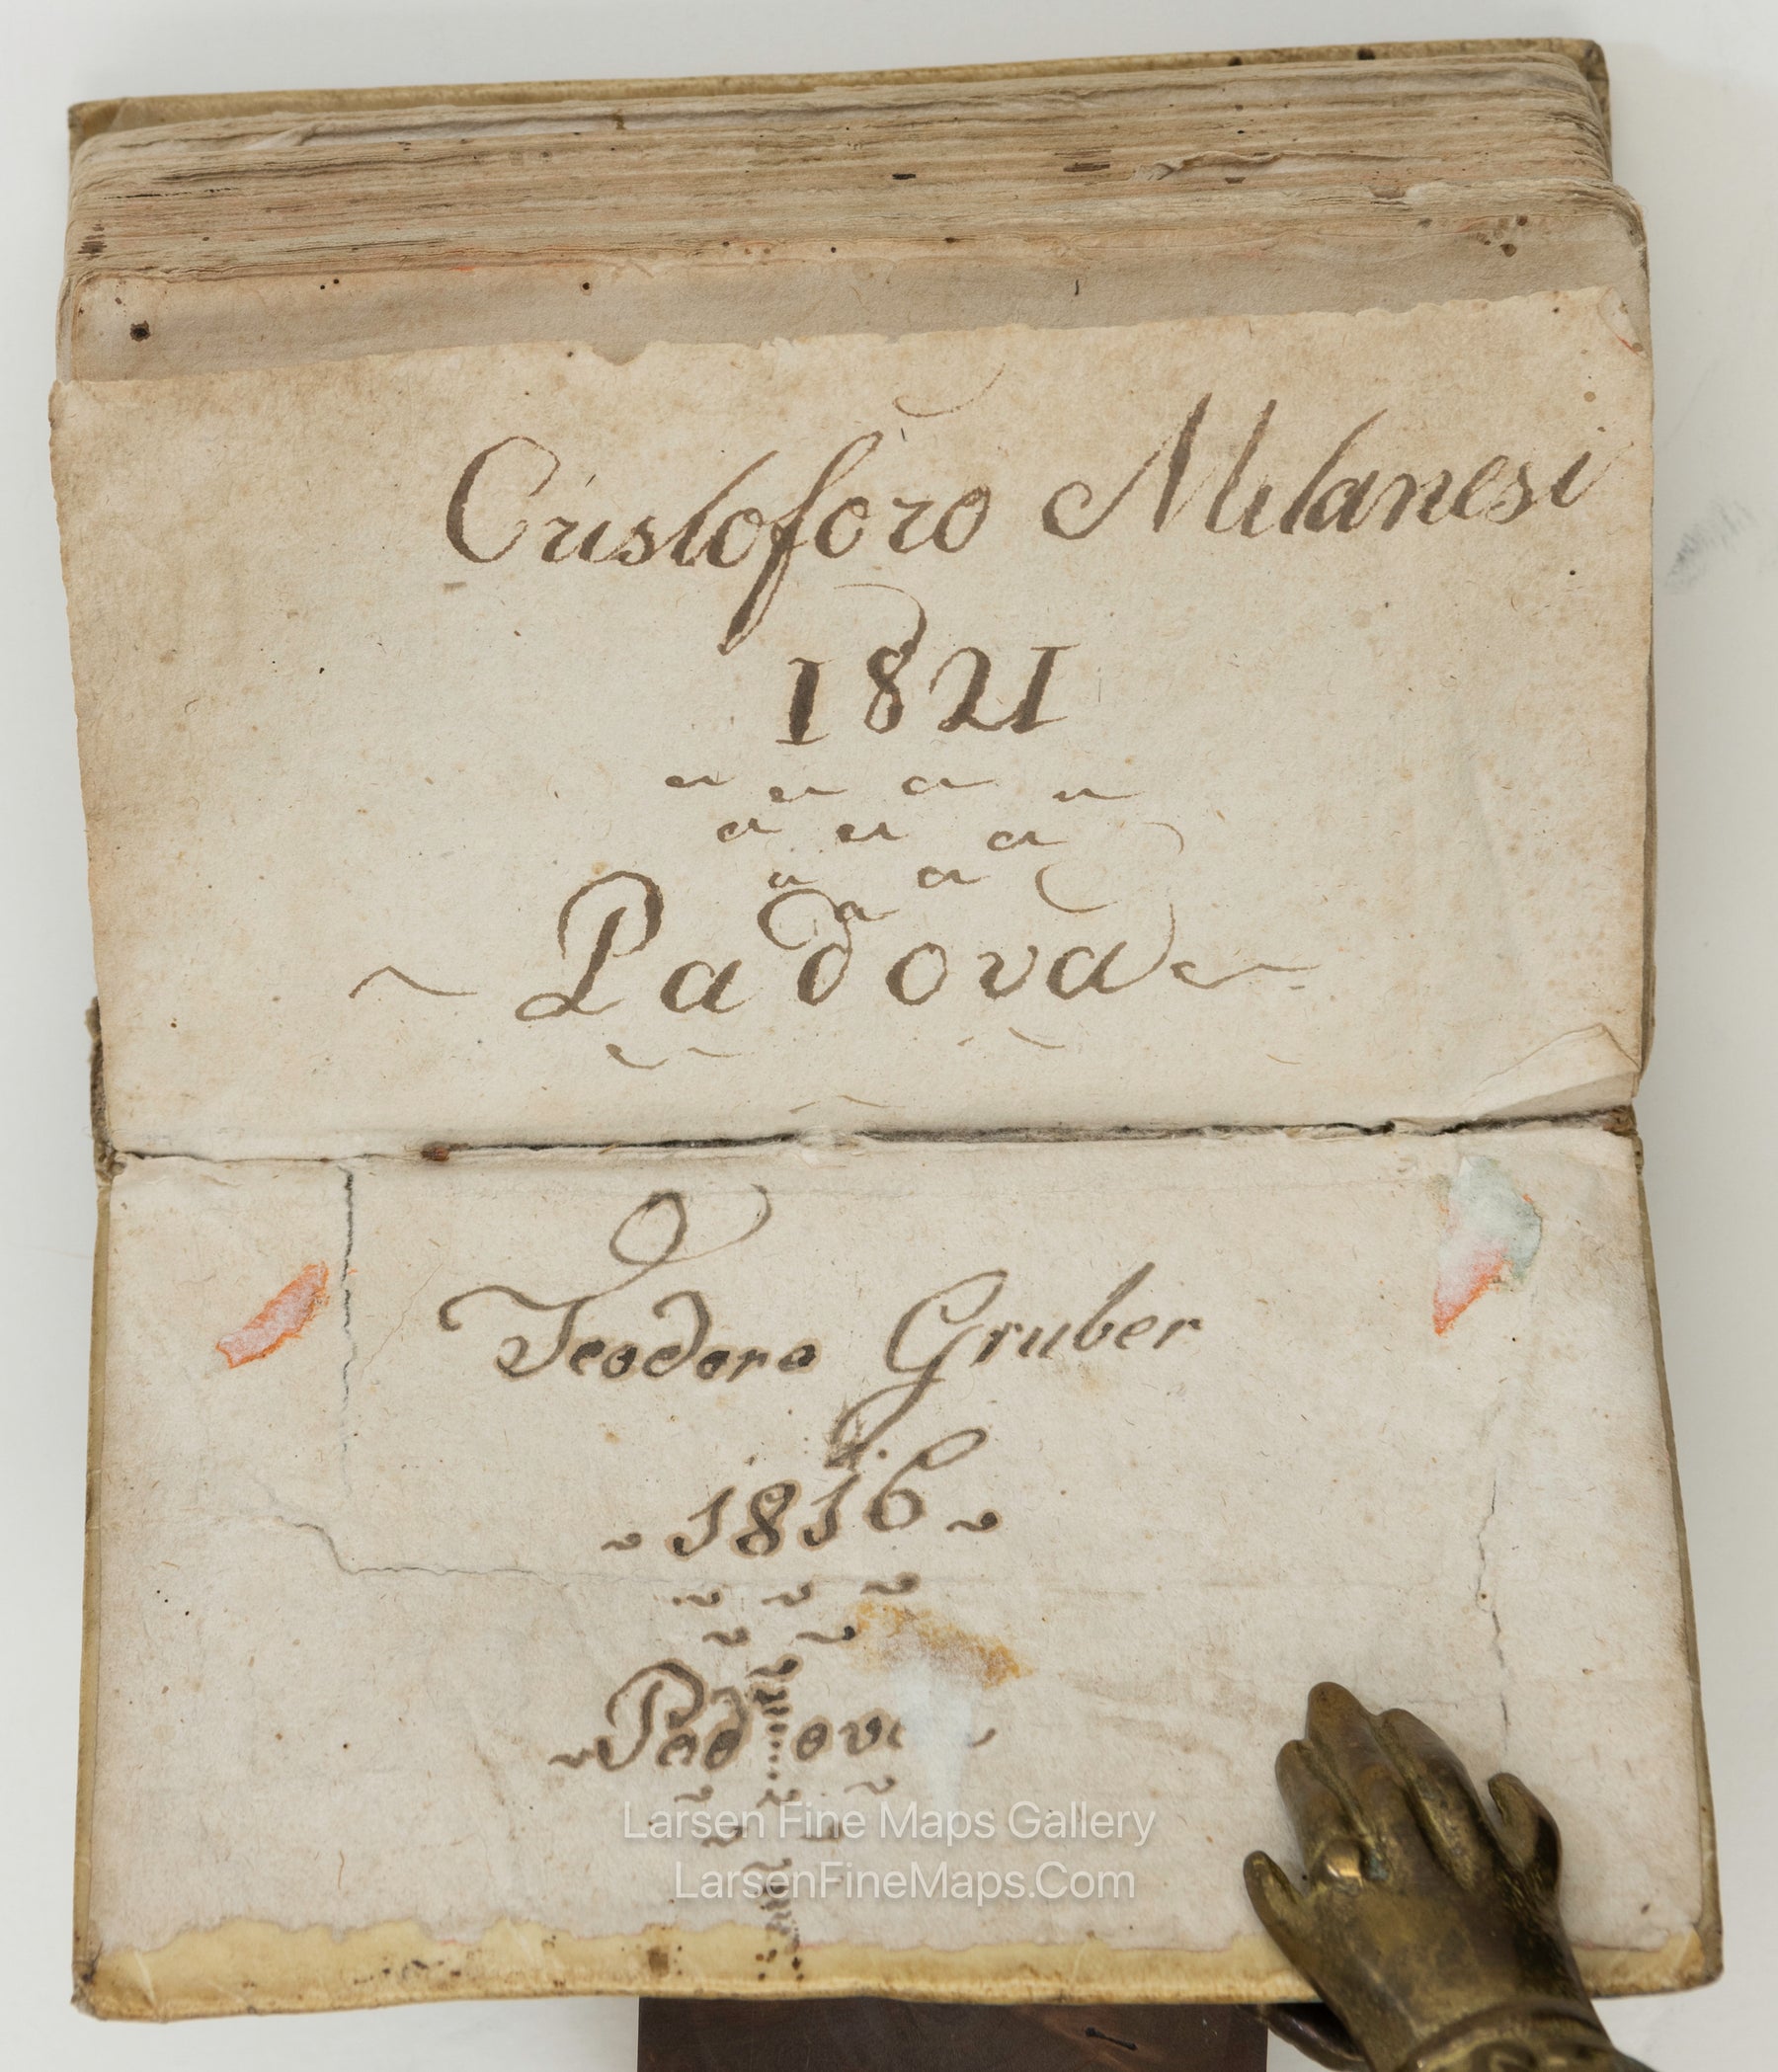 Cristoforo Milanesi
1821
Padova
Teodoro Gruber
1816
Padova
Larsen Fine Maps Gallery
LarsenFineMaps.Com